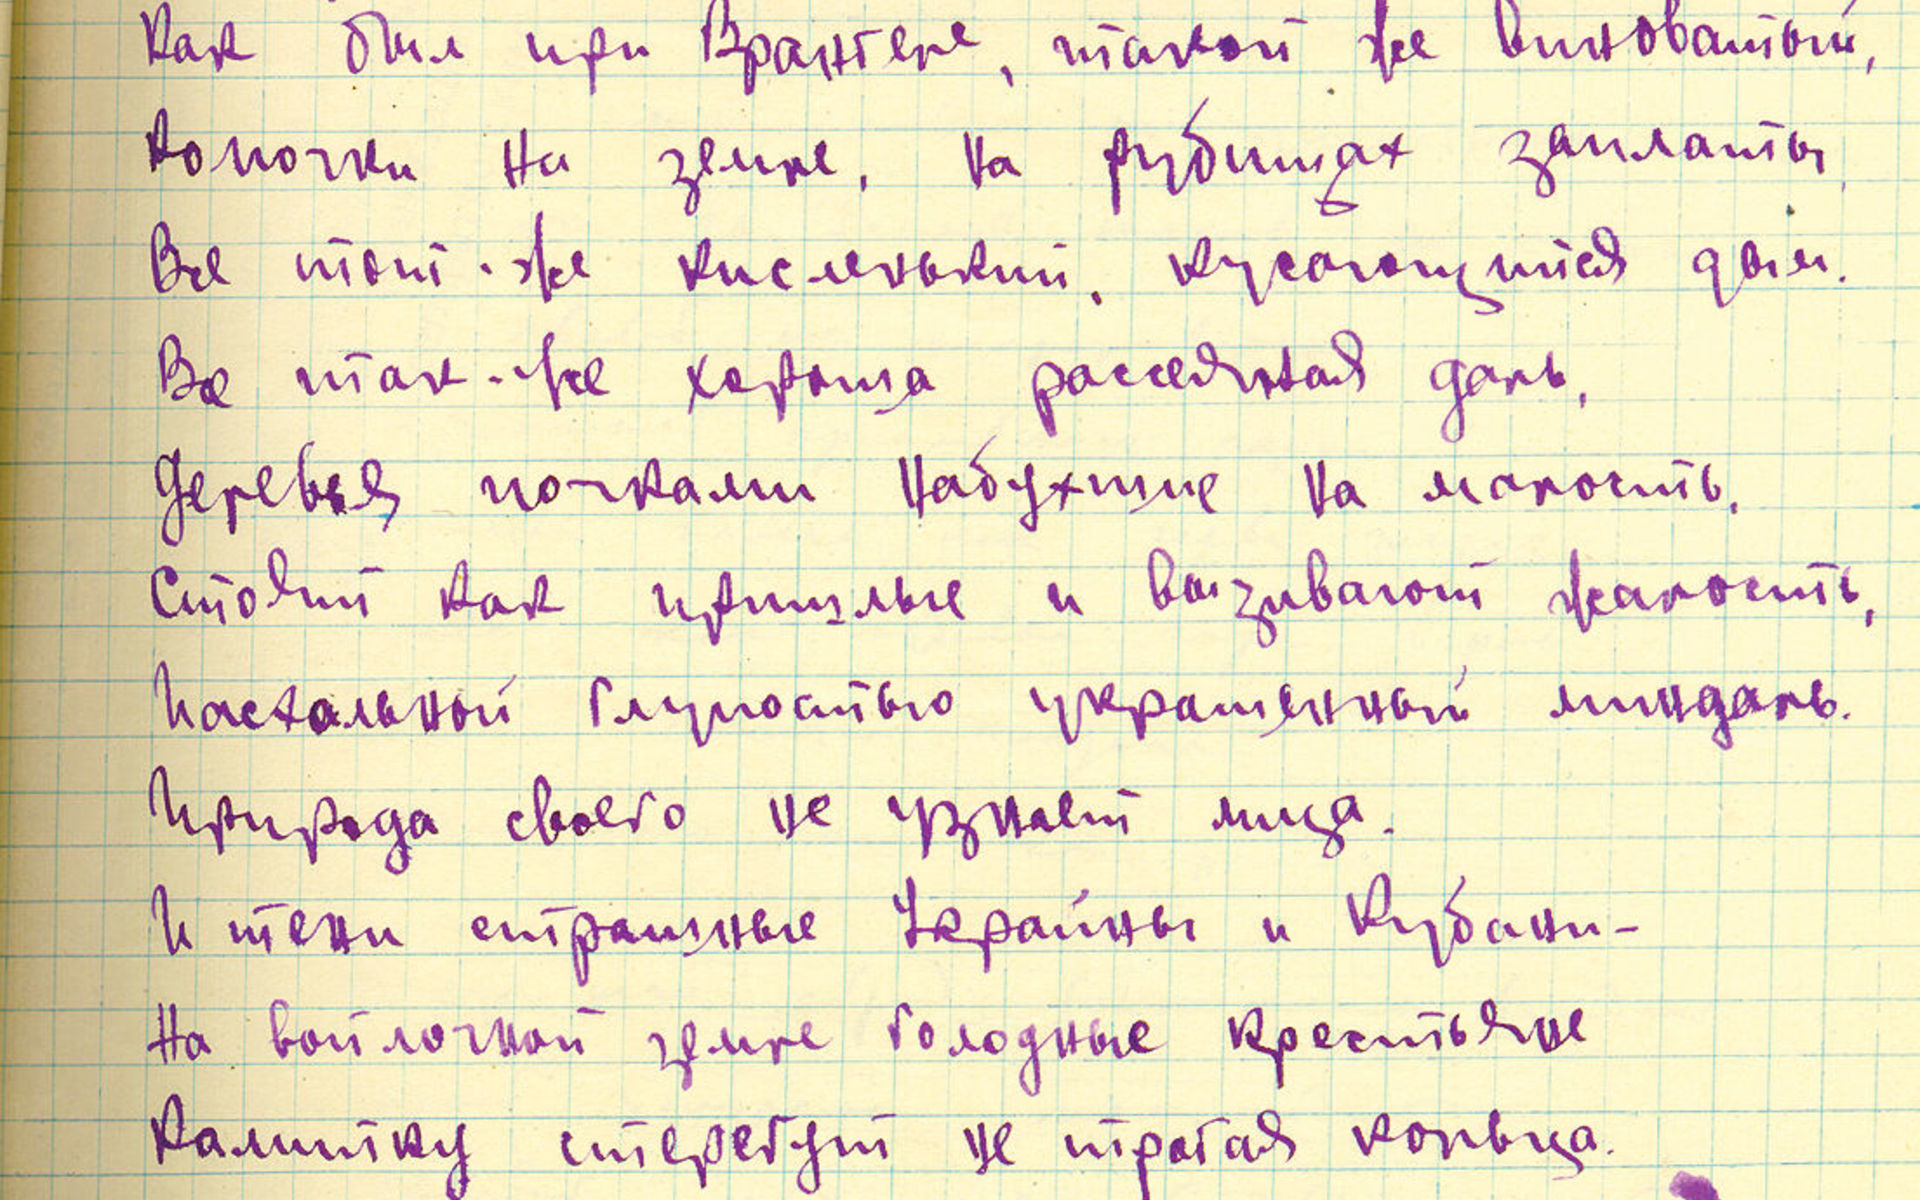 Как был при Врангеле, такой же виноватый,
Колючки на земле, на рубищах заплаты,
Все тот-же кисленький, кусающийся дым.
Все так-же хороша рассеянная даль,
Деревья почками набухшие на малость,
Стоят как пришлые и вызывают жалость,
Пасхальной глупостью украшенный миндаль.
Природа своего не узнает лица.
И тени страшные Украйны и Кубани-
На войлочной земле голодные крестьяне
Калитку стерегут не трогая кольца.